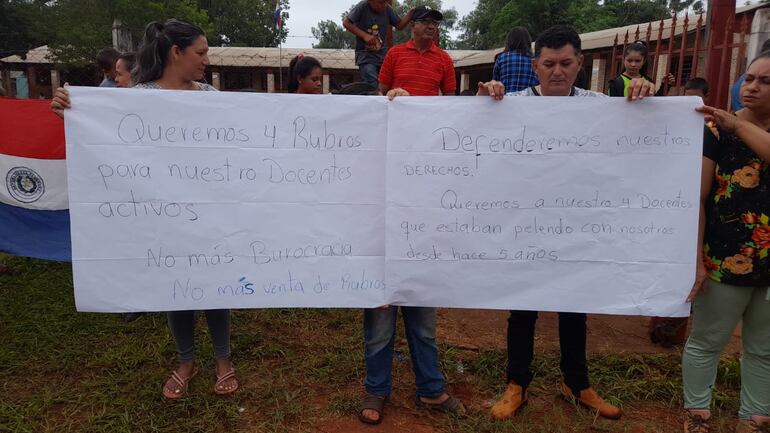 Queremos 4 Rubros
para nuestro Docentes
activos
No más Burocracia
No más venta de Rubros
Defenderemos nuestros
DERECHOS!
Queremos a nuestro 4 Docentes
que estaban pelendo con nosotros
desde hace 5 años